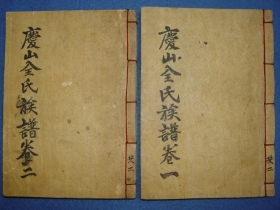 慶山全氏族譜卷二
慶山全氏族譜卷一